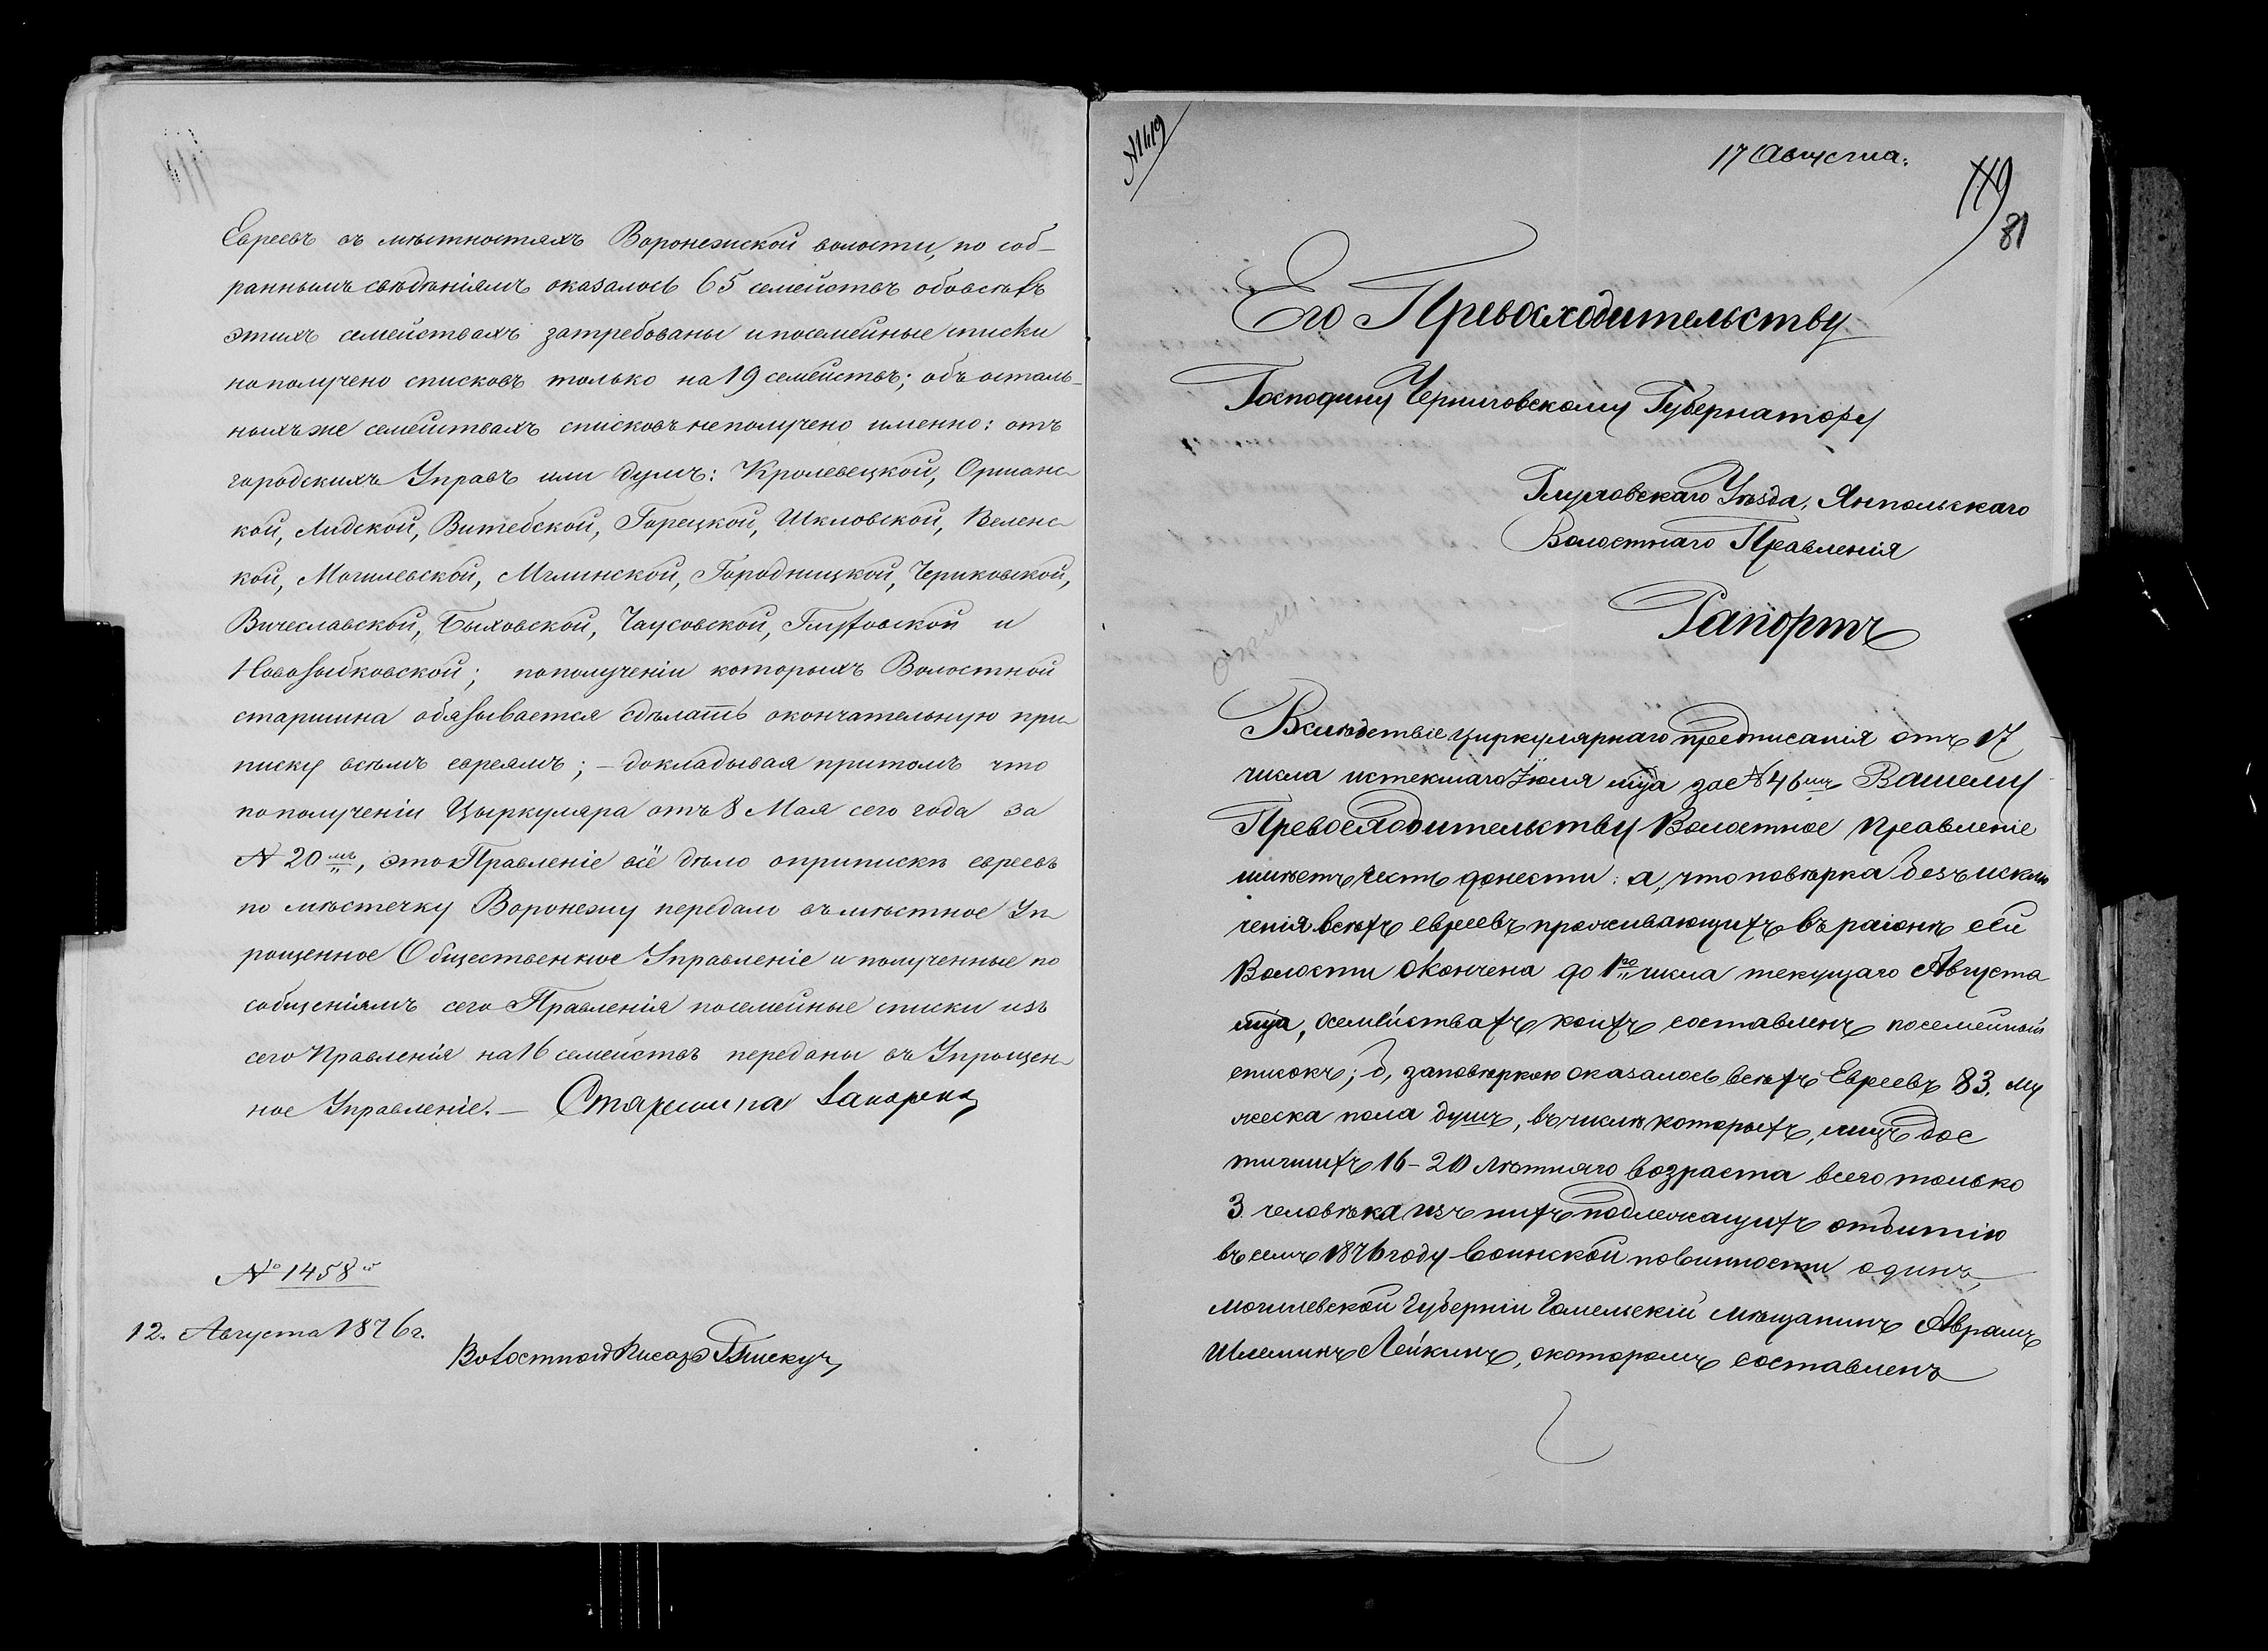 Евреевъ въ мѣстностяхъ Воронежской волости, по соб-
раннымъ свѣдѣніямъ оказалось 65 семействъ обовсѣхъ
этихъ семействахъ затребованы и посемейные списки
но получено списковъ только на 19 семействъ; объ осталь-
ныхъ же семействахъ списковъ неполучено именно: отъ
городскихъ Управъ или думъ: Кролевецкой, Оршанс-
кой, Лидской, Витебской, Горецкой, Шкловской, Веленс-
кой, Могилевской, Мглинской, Городницкой, Чериковской,
Вичеславской, Быховской, Чаусовской, Глуховской и
Новозыбковской; пополученіи которыхъ Волостной
старшина обязывается сдѣлать окончательную при-
писку всѣмъ евреямъ; – докладывая притомъ что
пополученіи Цыркуляра отъ 8 Мая сего года за
№ 20мъ, это Правленіе всё дѣло оприпискѣ евреевъ
по мѣстечку Воронежу передало въ мѣстное Уп-
рощенное Общественное Управленіе и полученные по
собщеніямъ сего Правленія посемейные списки изъ
сего Правленія на 16 семействъ переданы въ Упрощен-
ное Управленіе. – Старшина
№ 1458й
12. Августа 1876 г.
Волостной Писарь
№1419
17 Августа.
119
81
Его Превосходительству
Господину Черниговскому Губернатору
Глуховскаго Уѣзда, Янпольскаго
Волостнаго Правленія
Рапортъ
Вслѣдствіе циркулярнаго предписанія отъ 17
числа истекшаго Іюля мца за № 46мъ Вашему
Превосходительству Волостное Правленіе
имѣетъ честь донести: а, что повѣрка безъ исклю
ченія всѣхъ евреевъ проживающихъ въ раіонѣ сей
Волости окончена до 1го числа текущаго Августа
мца, осемействахъ коихъ составленъ посемейный
списокъ; б, заповѣркою оказалось всѣхъ Евреевъ 83. му
жеска пола душъ, въ числѣ которыхъ, лицъ дос
тигшихъ 16-20 лѣтняго возраста всего только
3. человѣка изъ нихъ подлежащихъ отбытію
въ семъ 1876 году воинской повинности одинъ,
могилевской губерніи Гомельскій мѣщанинъ Аврамъ
Шлеминъ Лейкинъ, окоторомъ составленъ